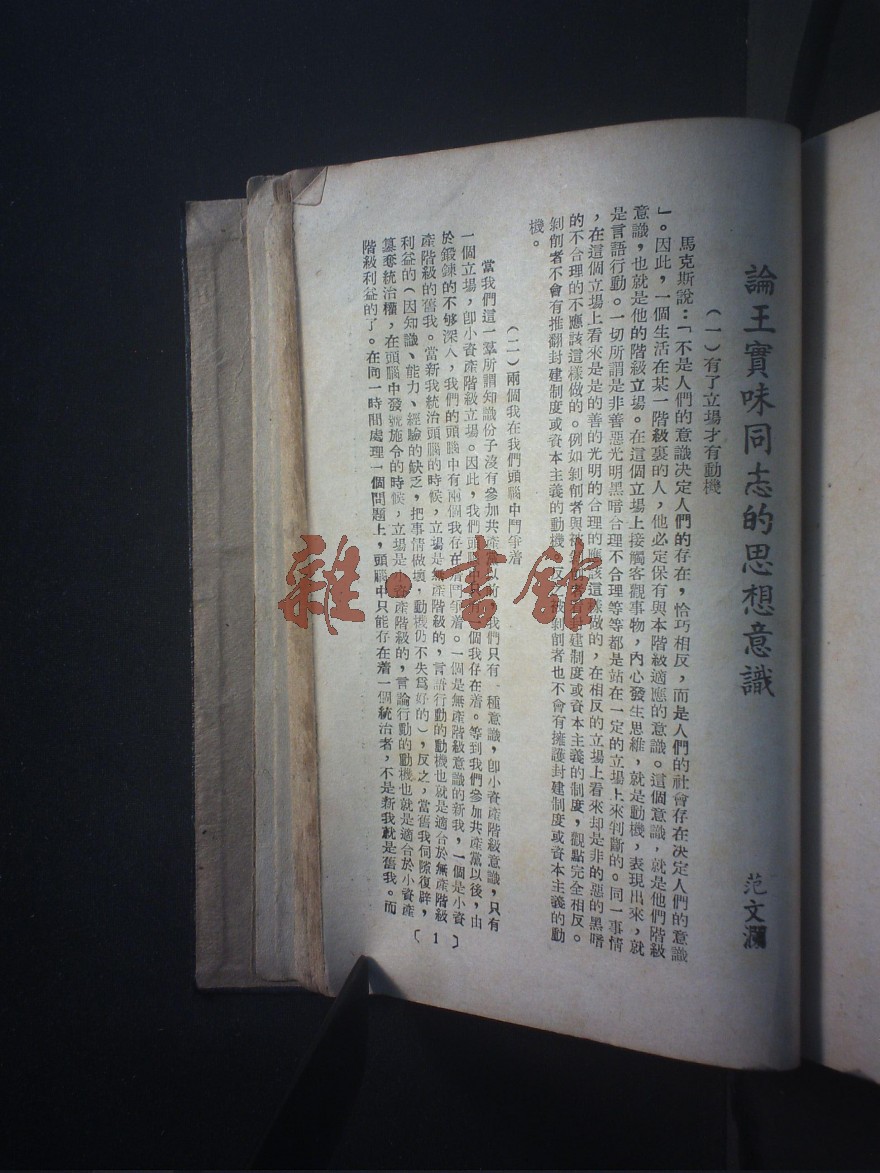 論王實味同志的思想意識
范文瀾
(一)有了立場才有動機
馬克斯說:「不是人們的意識決定人們的存在,恰巧相反,而是人們的社會存在決定人們的意識
」。因此,一個生活在某一階級裏的人,他必定保有與本階級適應的意識。這個意識,就是他們階級
意識,也就是他的階級立場。在這個立場上接觸客觀事物,內心發生思維,就是動機,表現出來,就
是言語行動。一切所謂是非善惡光明黑暗合理不合理等等都是站在一定的立場上來判斷的。同一事情
,在這個立場上看來是是的善的光明的合理的應該這樣做的,在相反的立場上看來却是非的惡的黑暗
的不合理的不應該這樣做的。例如剝削者與被建制度或資本主義的制度,觀點完全相反。
剝削者不會有推翻封建制度或資本主義的動機,被剝削者也不會有擁護封建制度或資本主義的動
機。
(二)兩個我在我們頭腦中鬥爭着
當我們這一羣所謂知識份子沒有參加共產黨以前,我們只有一種意識,卽小資產階級意識,只有
一個立場,卽小資產階級立場。因此,我們頭腦中個我存在着。等到我們參加共產黨以後,由
於鍛鍊的不够深入,我們的頭腦中有兩個我存在着鬥爭着。一個是無產階級意識的新我,一個是小資
產階級的舊我。當新我統治頭腦的時候,立場是無產階級的,言語行動的動機也就是適合於無產階級
利益的(因知識、能力、經驗的缺乏,把事情做壞,動機仍不失爲好的),反之,當舊我伺隙復辟,
篡奪統治權,在頭腦中發號施令的時候,立場是小資產階級的,言論行動的動機也就是適合於小資產
階級利益的了。在同一時間處理一個問題上,頭腦中只能存在着一個統治者,不是新我就是舊我。而
〔1〕
雜·書館